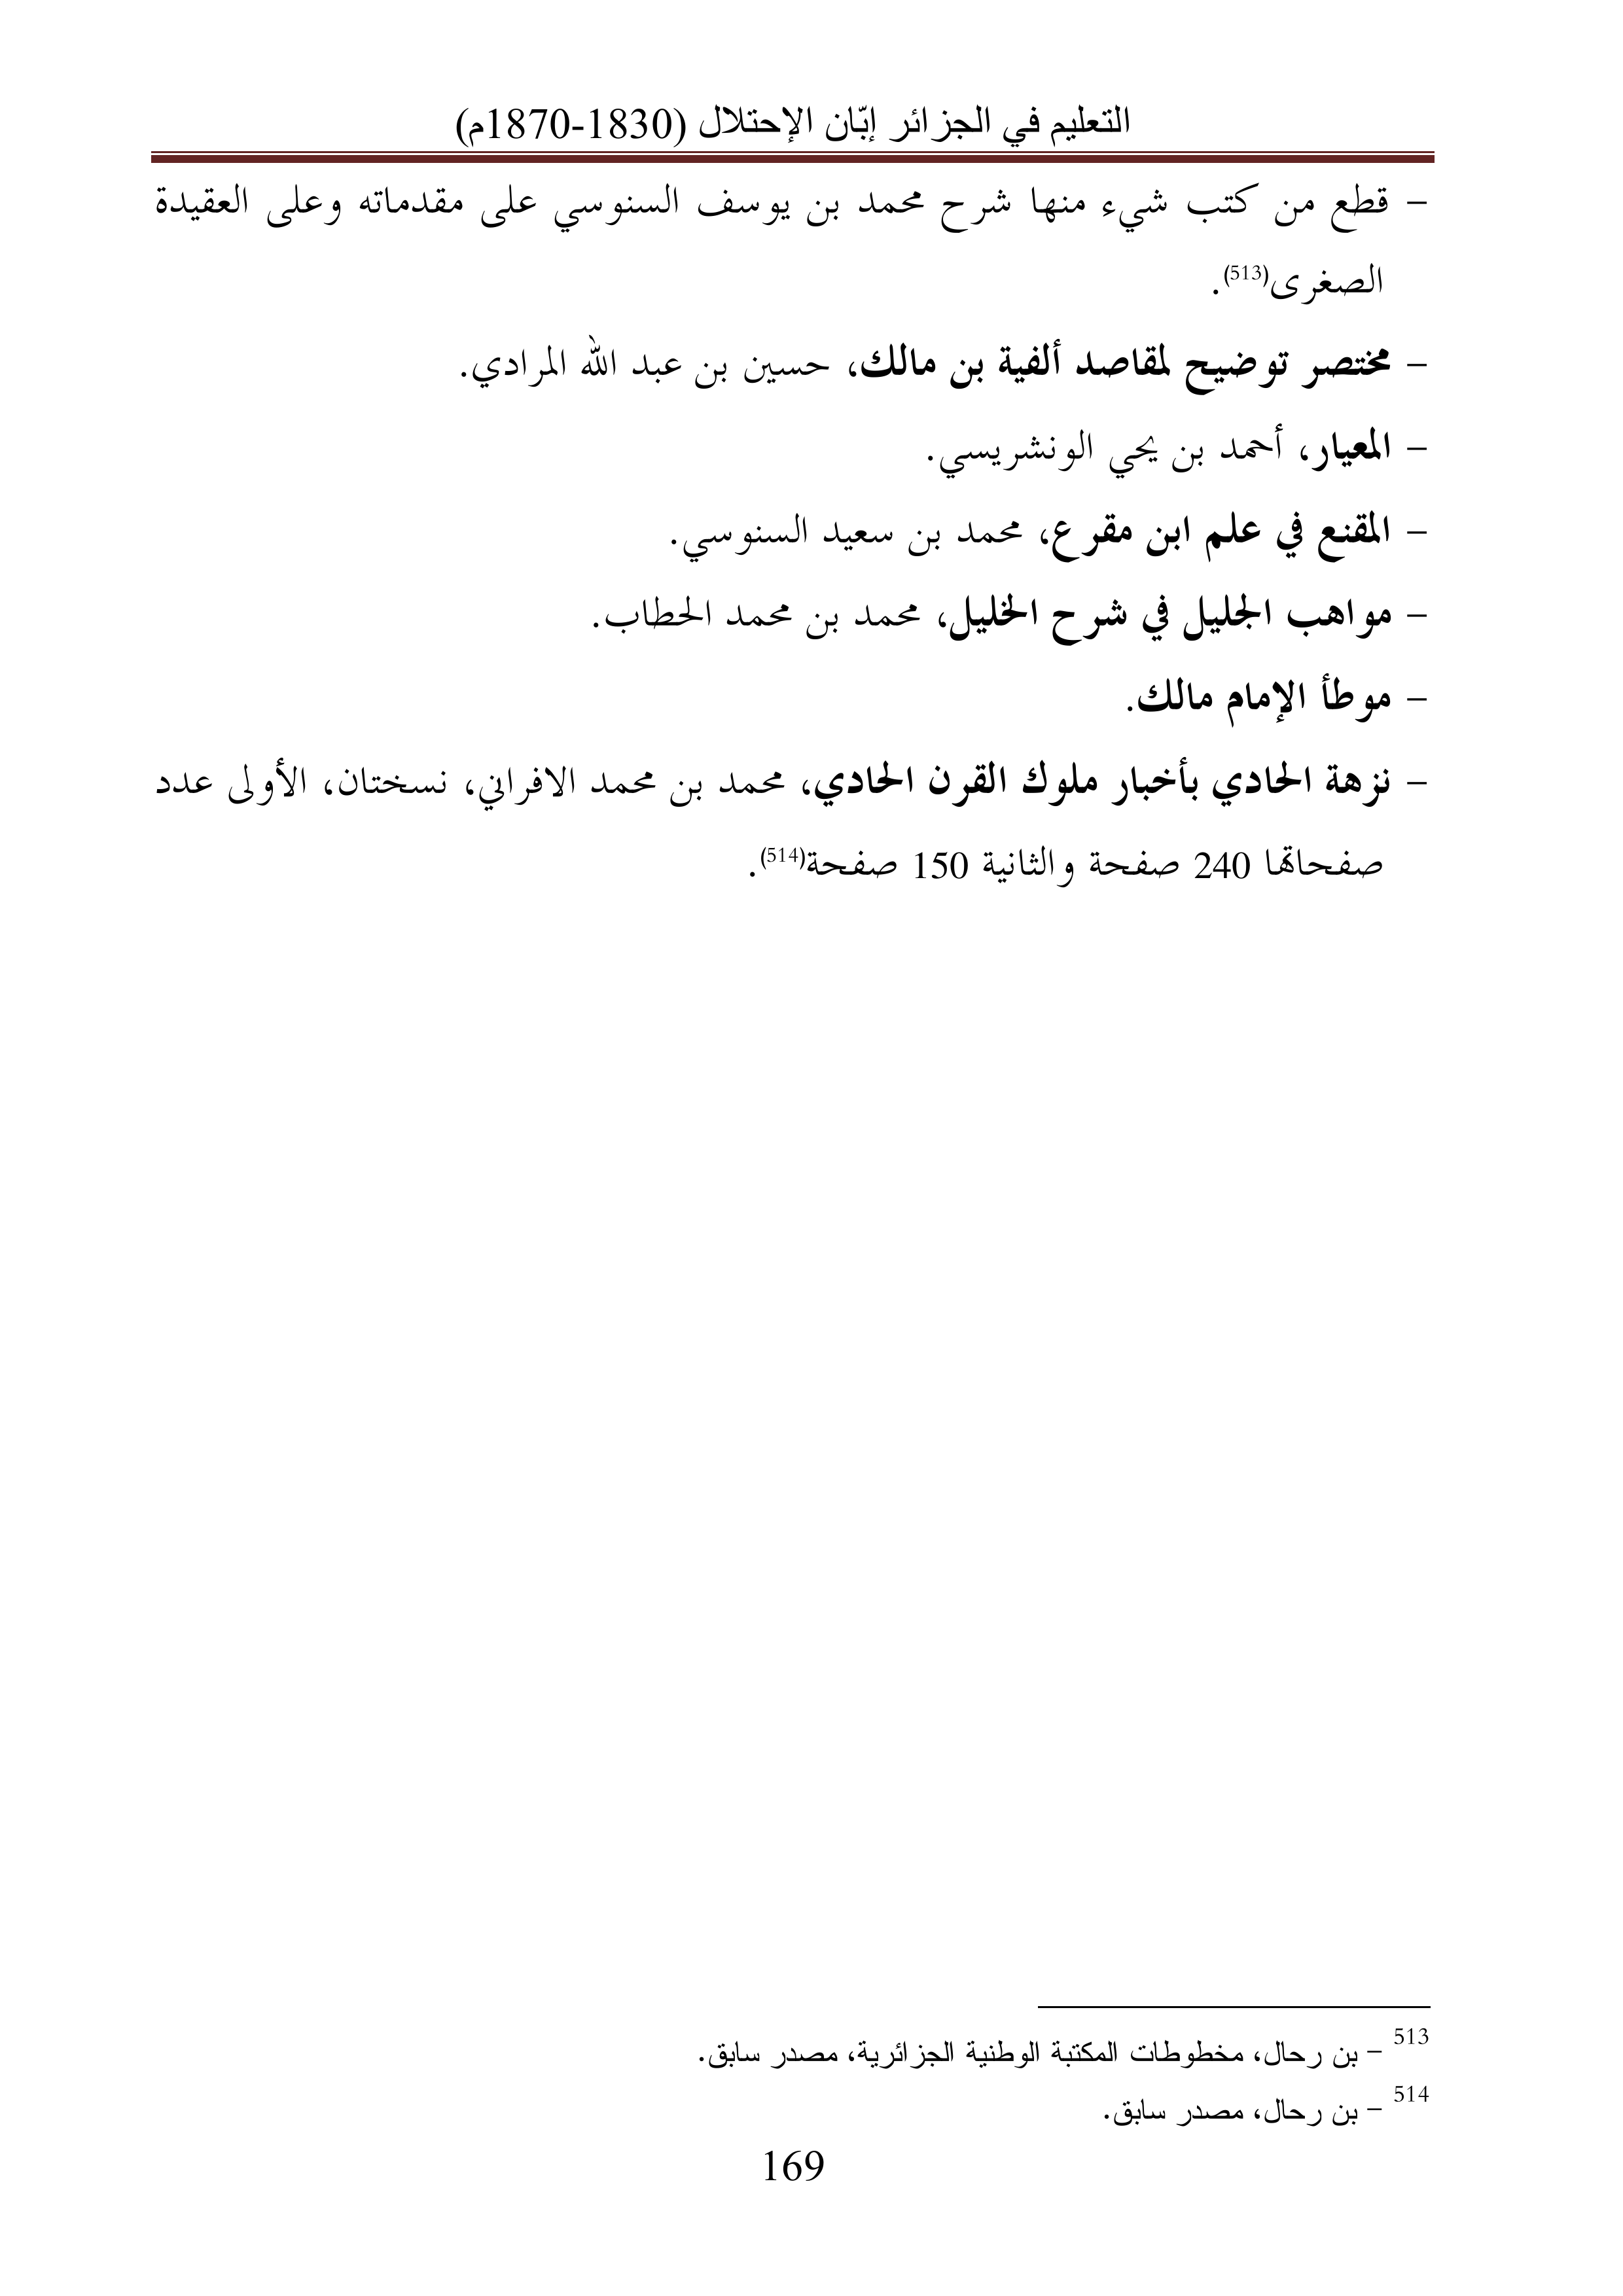 التعليم في الجزائر إبّان الإحتلال (1830-1870م)
- قطع من كتب شيء منها شرح محمد بن يوسف السنوسي على مقدماته وعلى العقيدة
الصغرى(513).
- مختصر توضيح لمقاصد ألفية بن مالك، حسين بن عبد الله المرادي.
- المعيار، أحمد بن يحي الونشريسي.
- المقنع في علم ابن مقرع، محمد بن سعيد السنوسي.
- مواهب الجليل في شرح الخليل، محمد بن محمد الحطاب.
- موطأ الإمام مالك.
- نزهة الحادي بأخبار ملوك القرن الحادي، محمد بن محمد الافراني، نسختان، الأولى عدد
صفحاتها 240 صفحة والثانية 150 صفحة(514).
513 - بن رحال، مخطوطات المكتبة الوطنية الجزائرية، مصدر سابق.
514 - بن رحال، مصدر سابق.
169